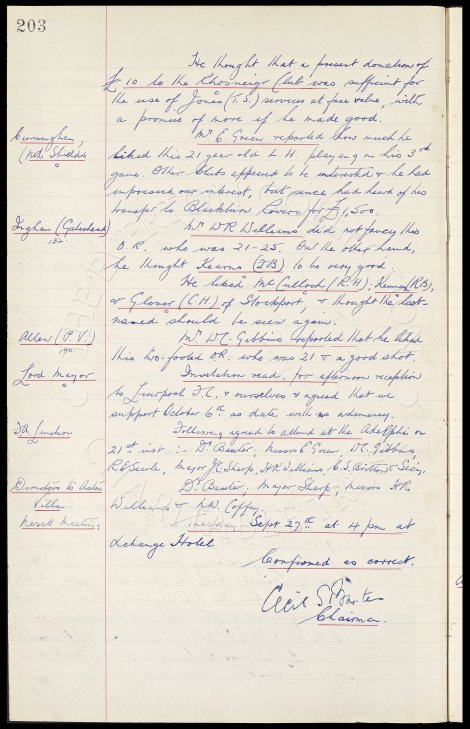 203
He thought that a present donation of
£10 to the Rhosneigr Club was sufficient for
the use of Jones (T.S.) services at face value, with
a promise of more if he made good.
Mr E. Green reported how much he
Cunningham,
(Nth Shields)
liked this 21 year old L.H. playing in his 3rd
game. Other clubs appeared to be interested & he had
impressed our interest, but since had heard of his
transfer to Blackburn Rovers for £1,500.
Ingham (Gateshead)
132
Mr W R Williams did not fancy this
O.R. who was 21-25. On the other hand,
he thought Kearns (IB) to be very good.
He liked McCulloch (R.H); (RB),
& Glover (C.H) of Stockport, & thought the last-
named should be seen again.
Allen (P.V.)
190.
Mr W.C. Gibbins reported that he liked
this two-footed OR. who was 21 & a good shot.
Lord Mayor
Invitation read, for afternoon reception
to Liverpool F.C. & ourselves & agreed that we
support October 6th as date with no
FA Luncheon
Following agreed to attend at the Adelphi on
21st inst. :- Dr Baxter, Messrs E. Green, W.C. Gibbins,
R.E. Searle, Major J.C. Sharp, W.R. Williams & Secy.
Directors to Aston
Villa
Dr. Baxter, Major Sharp, Messrs W.R.
Williams & N.W. Coffey.
Next Meeting:
Tuesday, Sept 27th at 4 pm at
Exchange Hotel
Confirmed as correct.
Cecil S Baxter
Chairman.